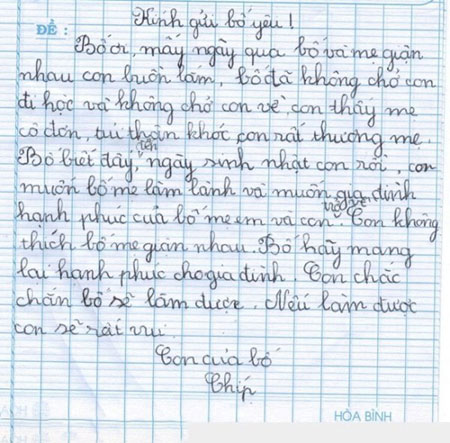 Kính gửi bố yêu!
ĐỀ:
Bố ơi, mấy ngày qua bố và mẹ giận
nhau con buồn lắm, bố đã không chở con
đi học và không chở con về, con thấy mẹ
cô đơn, tủi thân khóc con rất thương mẹ.
Bố biết đây, tới ngày sinh nhật con rồi, con
muốn bố mẹ làm lành và muốn gia đình
hạnh phúc của bố mẹ em và con vui vẻ. Con không
thích bố mẹ giận nhau. Bố hãy mang
lại hạnh phúc cho gia đình. Con chắc
chắn bố sẽ làm được. Nếu làm được
con sẽ rất vui.
Con của bố
Chíp
HÒA BÌNH